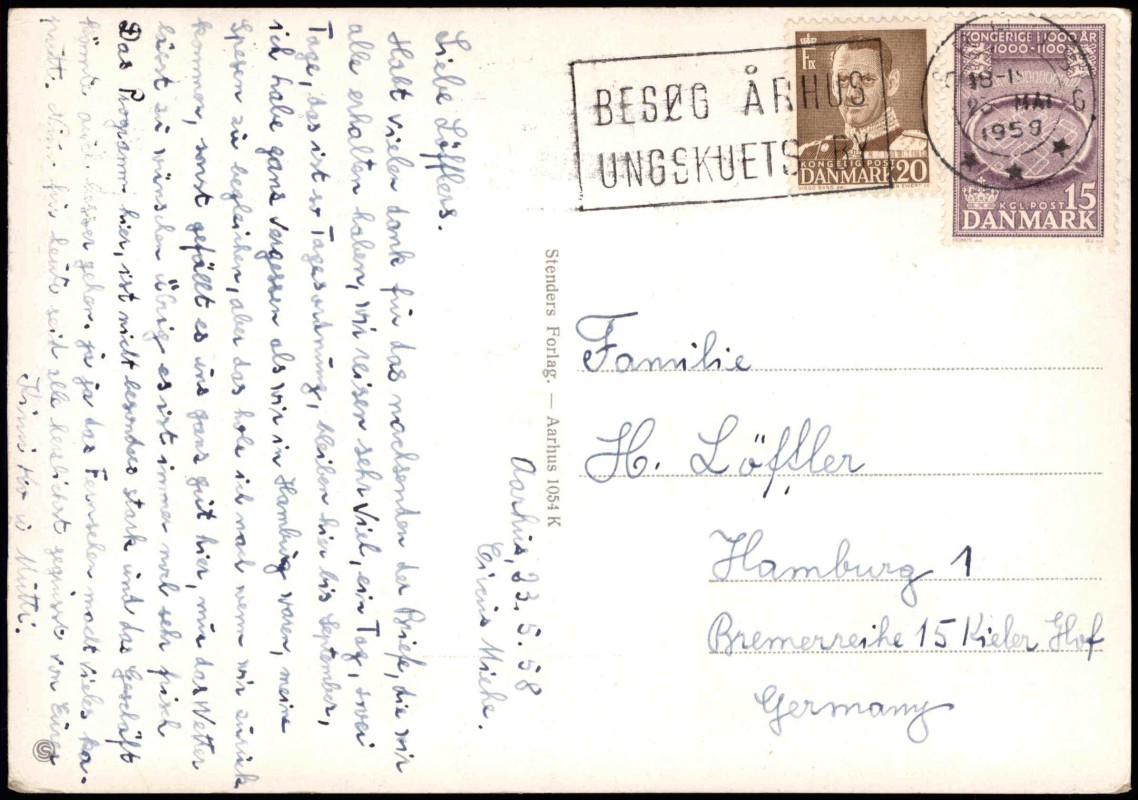 Aarhus, 23.5.58
Circus Miehe.
Liebe Löfflers.
Habt vielen dank für das nachsenden der Briefe, die wir
alle erhalten haben, wir reisen sehr viel, ein Tag, zwei
Tage, das ist so Tagesordnung, bleiben hier bis September,
ich habe ganz vergessen als wir in Hamburg waren, meine
Spesen zu begleichen, aber das hole ich nach wenn wir zurück
kommen, sonst gefällt es uns ganz gut hier, nur das Wetter
lässt zu wünschen übrig es ist immer noch sehr frisch
Das Programm hier, ist nicht besonders stark und das Geschäft
könnte auch besser gehen. ja ja das Fernsehen macht vieles ka-
putt. bis heute seid alle herzlichst gegrüsst von Eurer
Mutti.
Stenders Forlag. — Aarhus 1054 K
BESØG ÅRHUS
UNGSKUETS BY
KONGELIG POST
DANMARK 20
KONGERIGE I 1000 ÅR
1000-1100
KGL. POST 15
DANMARK
MAI
1958
Familie
H. Löffler
Hamburg 1
Bremerreihe 15 Kieler Hof
Germany